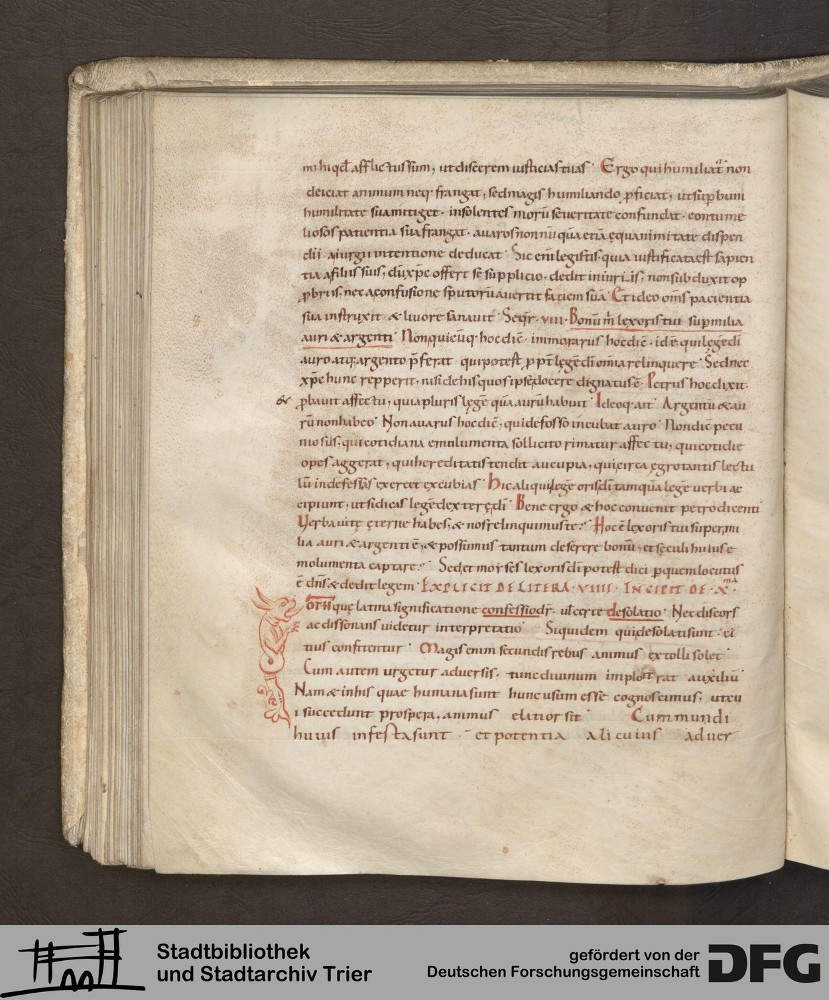 mihi qđ afflictus sum, ut discerem iustificias tuas. Ergo qui humiliat̃ non
deiciat animum neq; frangat, sed magis humiliando ꝓficiat, ut suꝑbum
humilitate sua mitiget. insolentes morũ seueritate confundat. contume
liosos patientia sua frangat. auaros non nũ quã etiã ęquanimitate dispen
dii. a iurgii intentione deducat. Sic enĩ legistis. quia iustificata est sapien
tia a filiis suis, dũ xp̃c offert sẽ supplicio. dedit iniuriis, non subduxit op
ꝓbriis, nec a confusione sputorũ auertit faciem suã. Et ideo om̃s pacientia
sua instruxit. & liuore sanauit. Seqr̃. viii. Bonũ m̃ lex oris tui sup̃ milia
auri & argenti. Non quicũq; hoc dic̃. immorarus hoc dic̃. id ẽ. qui legẽ dĩ
auro atq; argento p̃ferat. qui potest ꝓpt̃ legẽ dĩ om̃ia relinquere. Sed nec
xp̃c hunc repperit, nisi de his quos ipse docere dignatus ẽ. Petrus hoc dixit.
& ꝓbauit affectu, quia pluris legẽ quã aurũ habuit. Ideoq; ait. Argentũ & au
rũ non habeo. Non auarus hoc dic̃, qui defosso incubat auro. Non dic̃ pecu
niosus, qui cotidiana emulumenta sollicito rimatur affectu, qui cotidie
opes aggerat, qui hereditatis tendit aucupia, qui circa ęgrotantis lectu
lũ indefessas exercet excubias. Hic aliqui lege oris dĩ tamquã lege uerbi ac
cipiunt, ut si dicas legẽ dexterę dĩ. Bene ergo & hoc conuenit petro dicenti
Uerba uitę ęterne habes, & nos relinquimus te. Hoc ẽ lex oris tui super mi
lia auri & argenti ẽ, & possumus tantum deserere bonũ, et sęculi huius e
molumenta captare. Sed et moyses lex oris dĩ potest dici p quem locutus
ẽ dñs & dedit legem. EXPLICIT DE LITERA. VIIII. INCIPIT DE. X.ma
IOTH que latina significatione confessio dr̃. uel certe desolatio. Nec discors
ac dissonans uidetur interpretatio. Siquidem qui desolati sunt. ci
tius confitentur. Magis enim secundis rebus animus extolli solet.
Cum autem urgetur aduersis. tunc diuinum implorat auxiliũ
Nam & in his quae humana sunt hunc usum esse cognoscimus, ut cu
i succedunt prospera, animus elatior sit. Cum mundi
huius infesta sunt. et potentia alicuius aduer
Stadtbibliothek
und Stadtarchiv Trier
gefördert von der
Deutschen Forschungsgemeinschaft
DFG